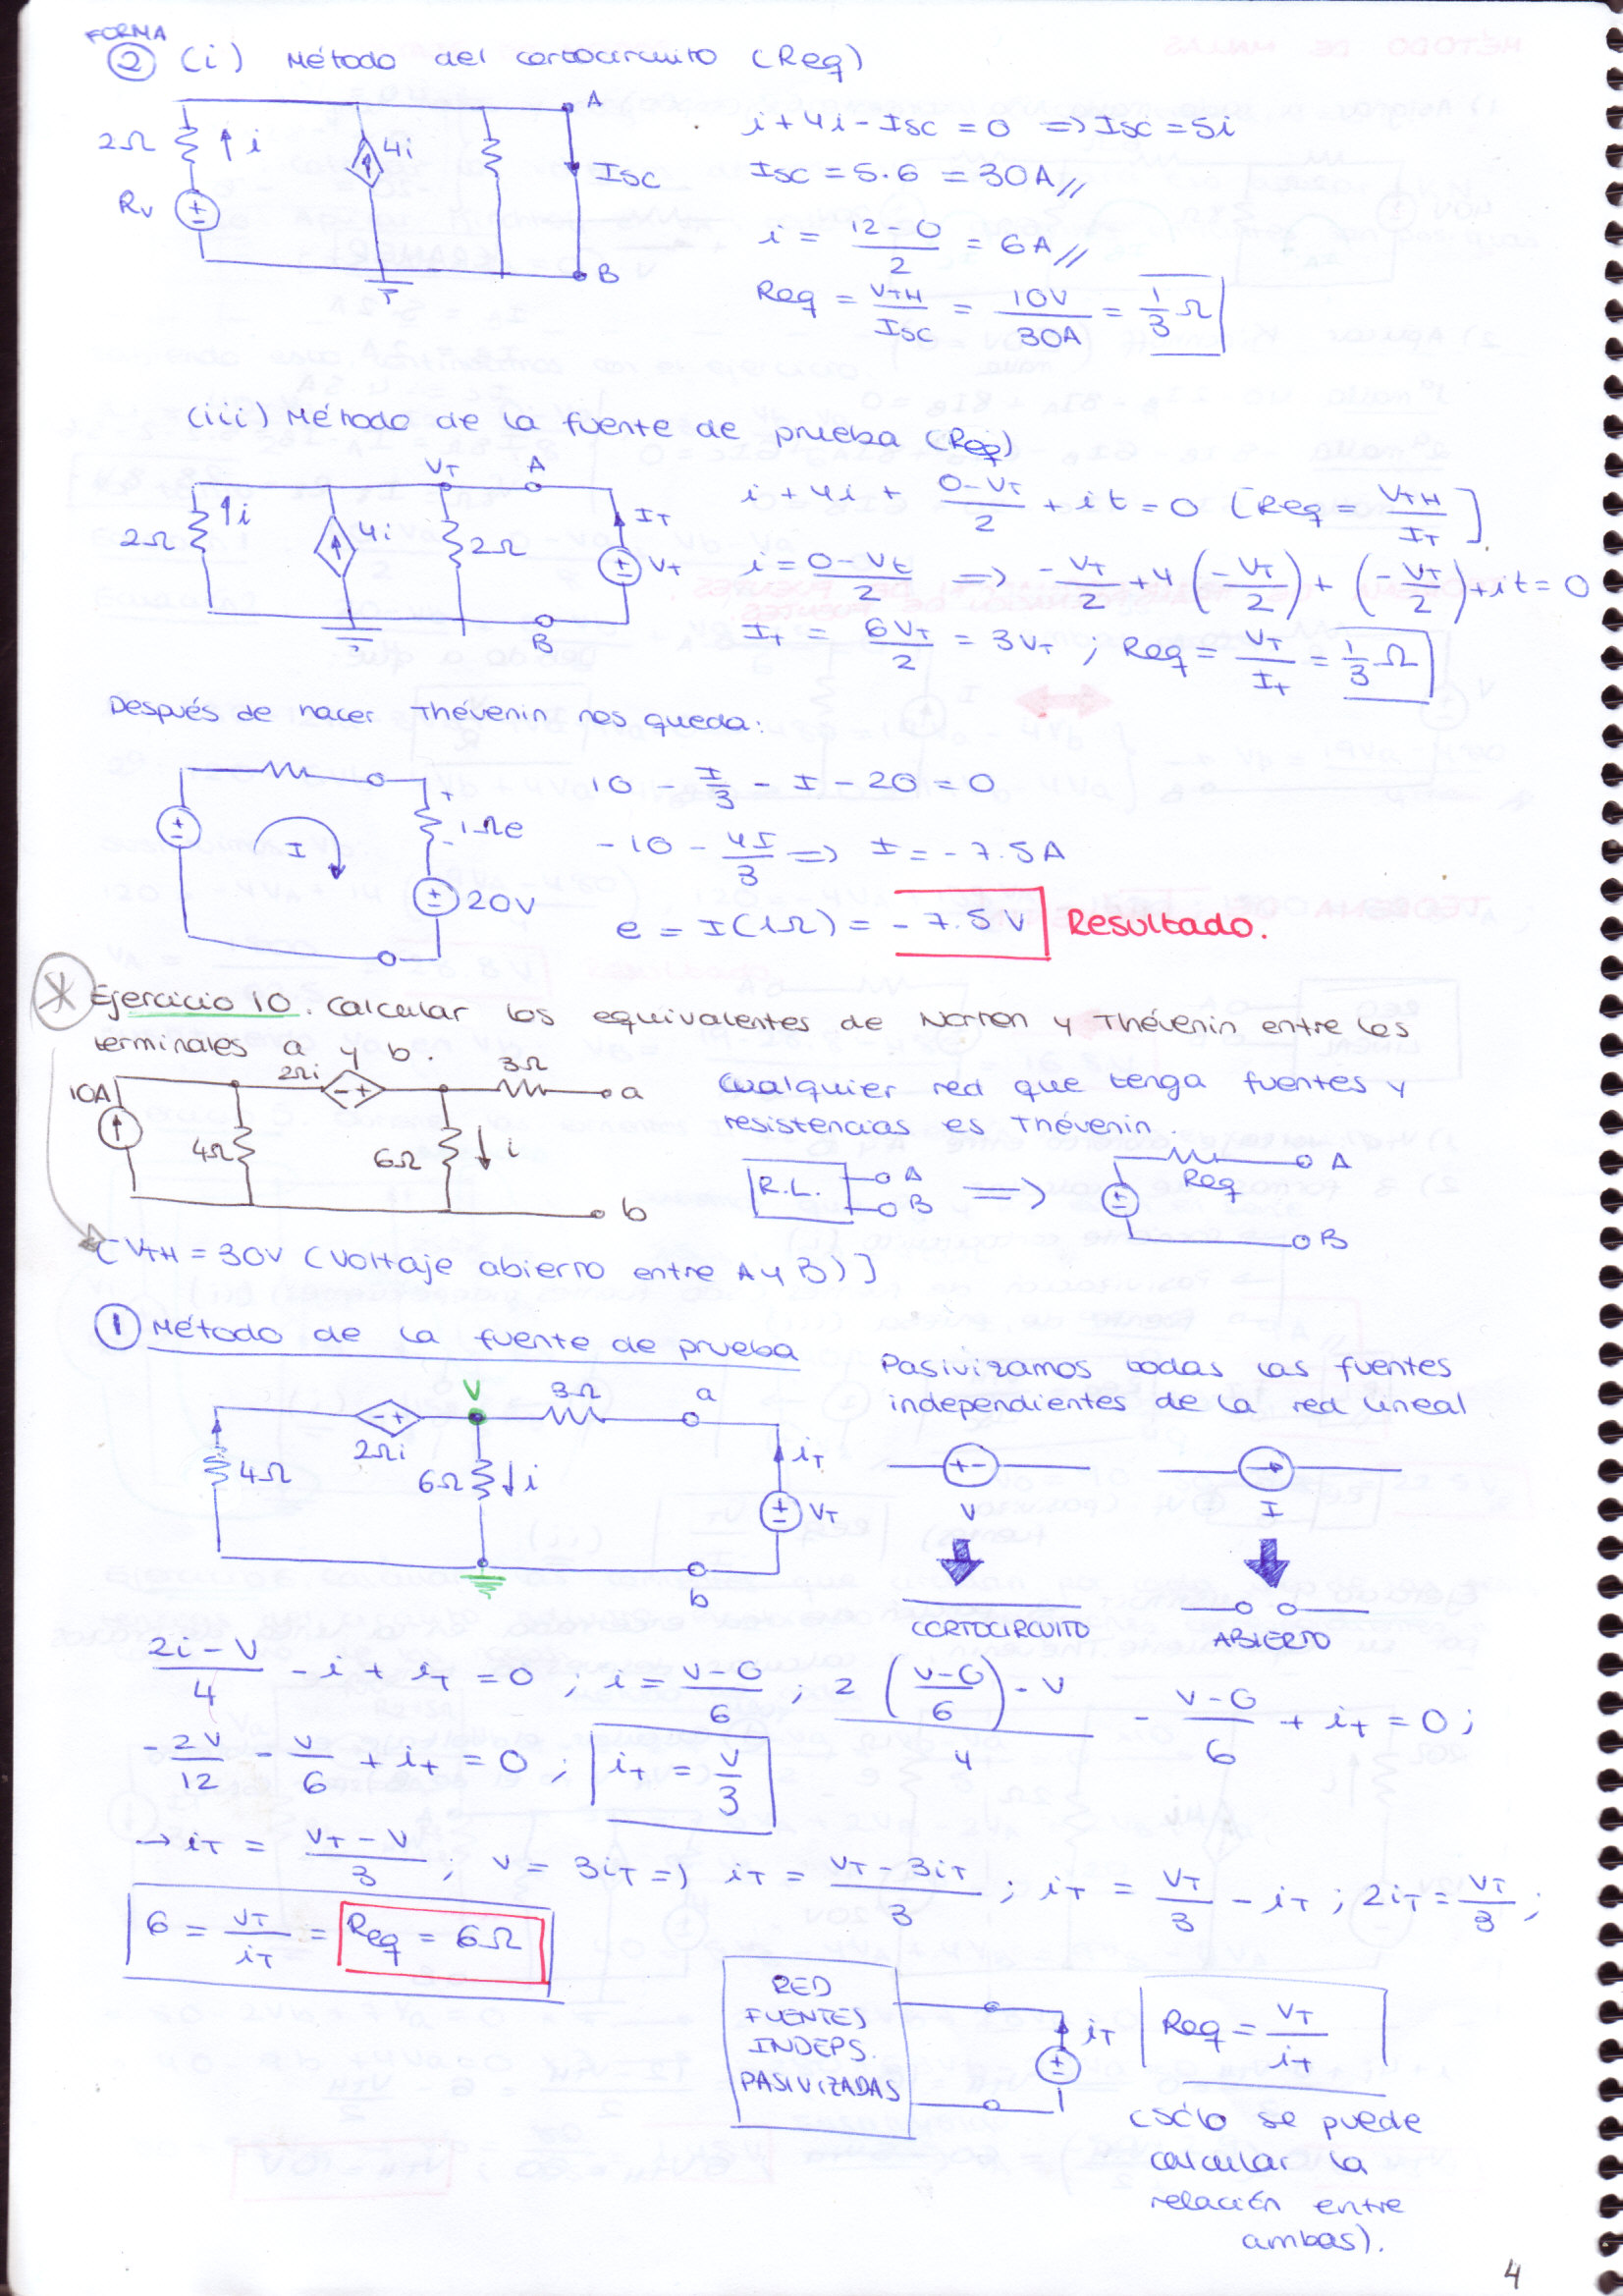 FORMA
② (i) Método del cortocircuito (Req)
2Ω i 4i A
Isc
Rv
B
i + 4i - Isc = 0 => Isc = 5i
Isc = 5·6 = 30A //
i = (12-0)/2 = 6A //
Req = VTH/Isc = 10V/30A = 1/3 Ω
(iii) Método de la fuente de prueba (Req)
VT A
i IT
2Ω 4i 2Ω VT
B
i + 4i + (0-VT)/2 + it = 0 [Req = VTH/IT]
i = (0-Vt)/2 => -VT/2 + 4(-VT/2) + (-VT/2) + it = 0
IT = 6VT/2 = 3VT ; Req = VT/IT = 1/3 Ω
Después de hacer Thévenin nos queda:
+
1Ω e
-
I
20V
10 - I/3 - I - 20 = 0
-10 - 4I/3 => I = -7.5A
e = I(1Ω) = -7.5V Resultado.
Ejercicio 10. Calcular los equivalentes de Norton y Thévenin entre los
terminales a y b.
10A 2Ωi 3Ω a
4Ω 6Ω i
b
Cualquier red que tenga fuentes y
resistencias es Thévenin.
R.L. A B => Req A B
[VTH = 30V (Voltaje abierto entre A y B)]
① Método de la fuente de prueba
V 3Ω a
2Ωi iT
4Ω 6Ω i VT
b
Pasivizamos todas las fuentes
independientes de la red lineal
V I
CORTOCIRCUITO ABIERTO
(2i - V)/4 - i + iT = 0 ; i = (V-0)/6 ; (2((V-0)/6) - V)/4 - (V-0)/6 + iT = 0 ;
-2V/12 - V/6 + iT = 0 ; iT = V/3
→ iT = (VT - V)/3 ; V = 3iT => iT = (VT - 3iT)/3 ; iT = VT/3 - iT ; 2iT = VT/3 ;
6 = VT/iT = Req = 6Ω
RED
FUENTES
INDEPS.
PASIVIZADAS
iT
Req = VT/iT
(Sólo se puede
calcular la
relación entre
ambas).
4